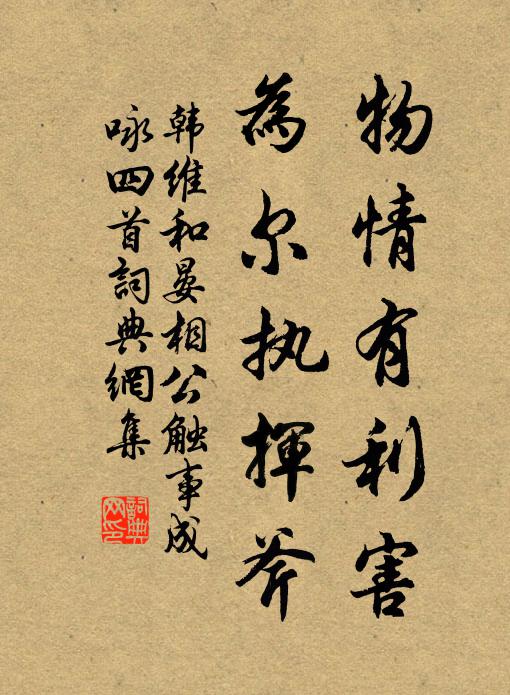 物情有利害
為尔执揮斧
韩维和晏相公触事成
咏四首詞典網集
詞典
网印